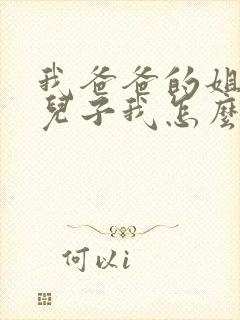 我爸爸的姐
兒子我怎麼
何以i